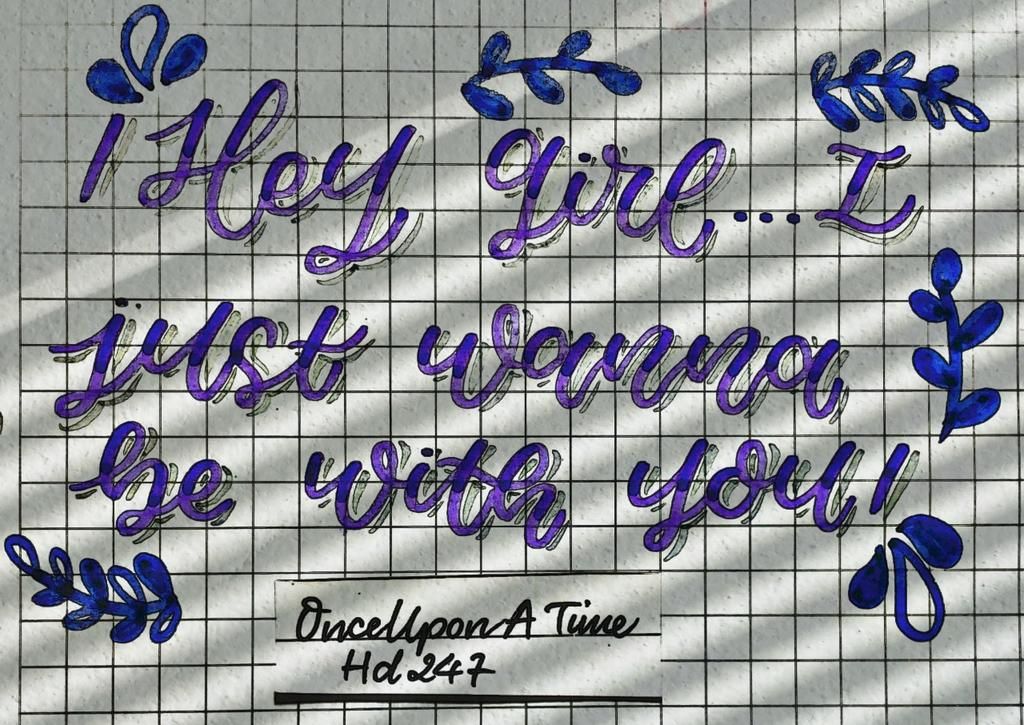 'Hey girl...I
just wanna
be with you'
OnceUpon A Time
Hd 247